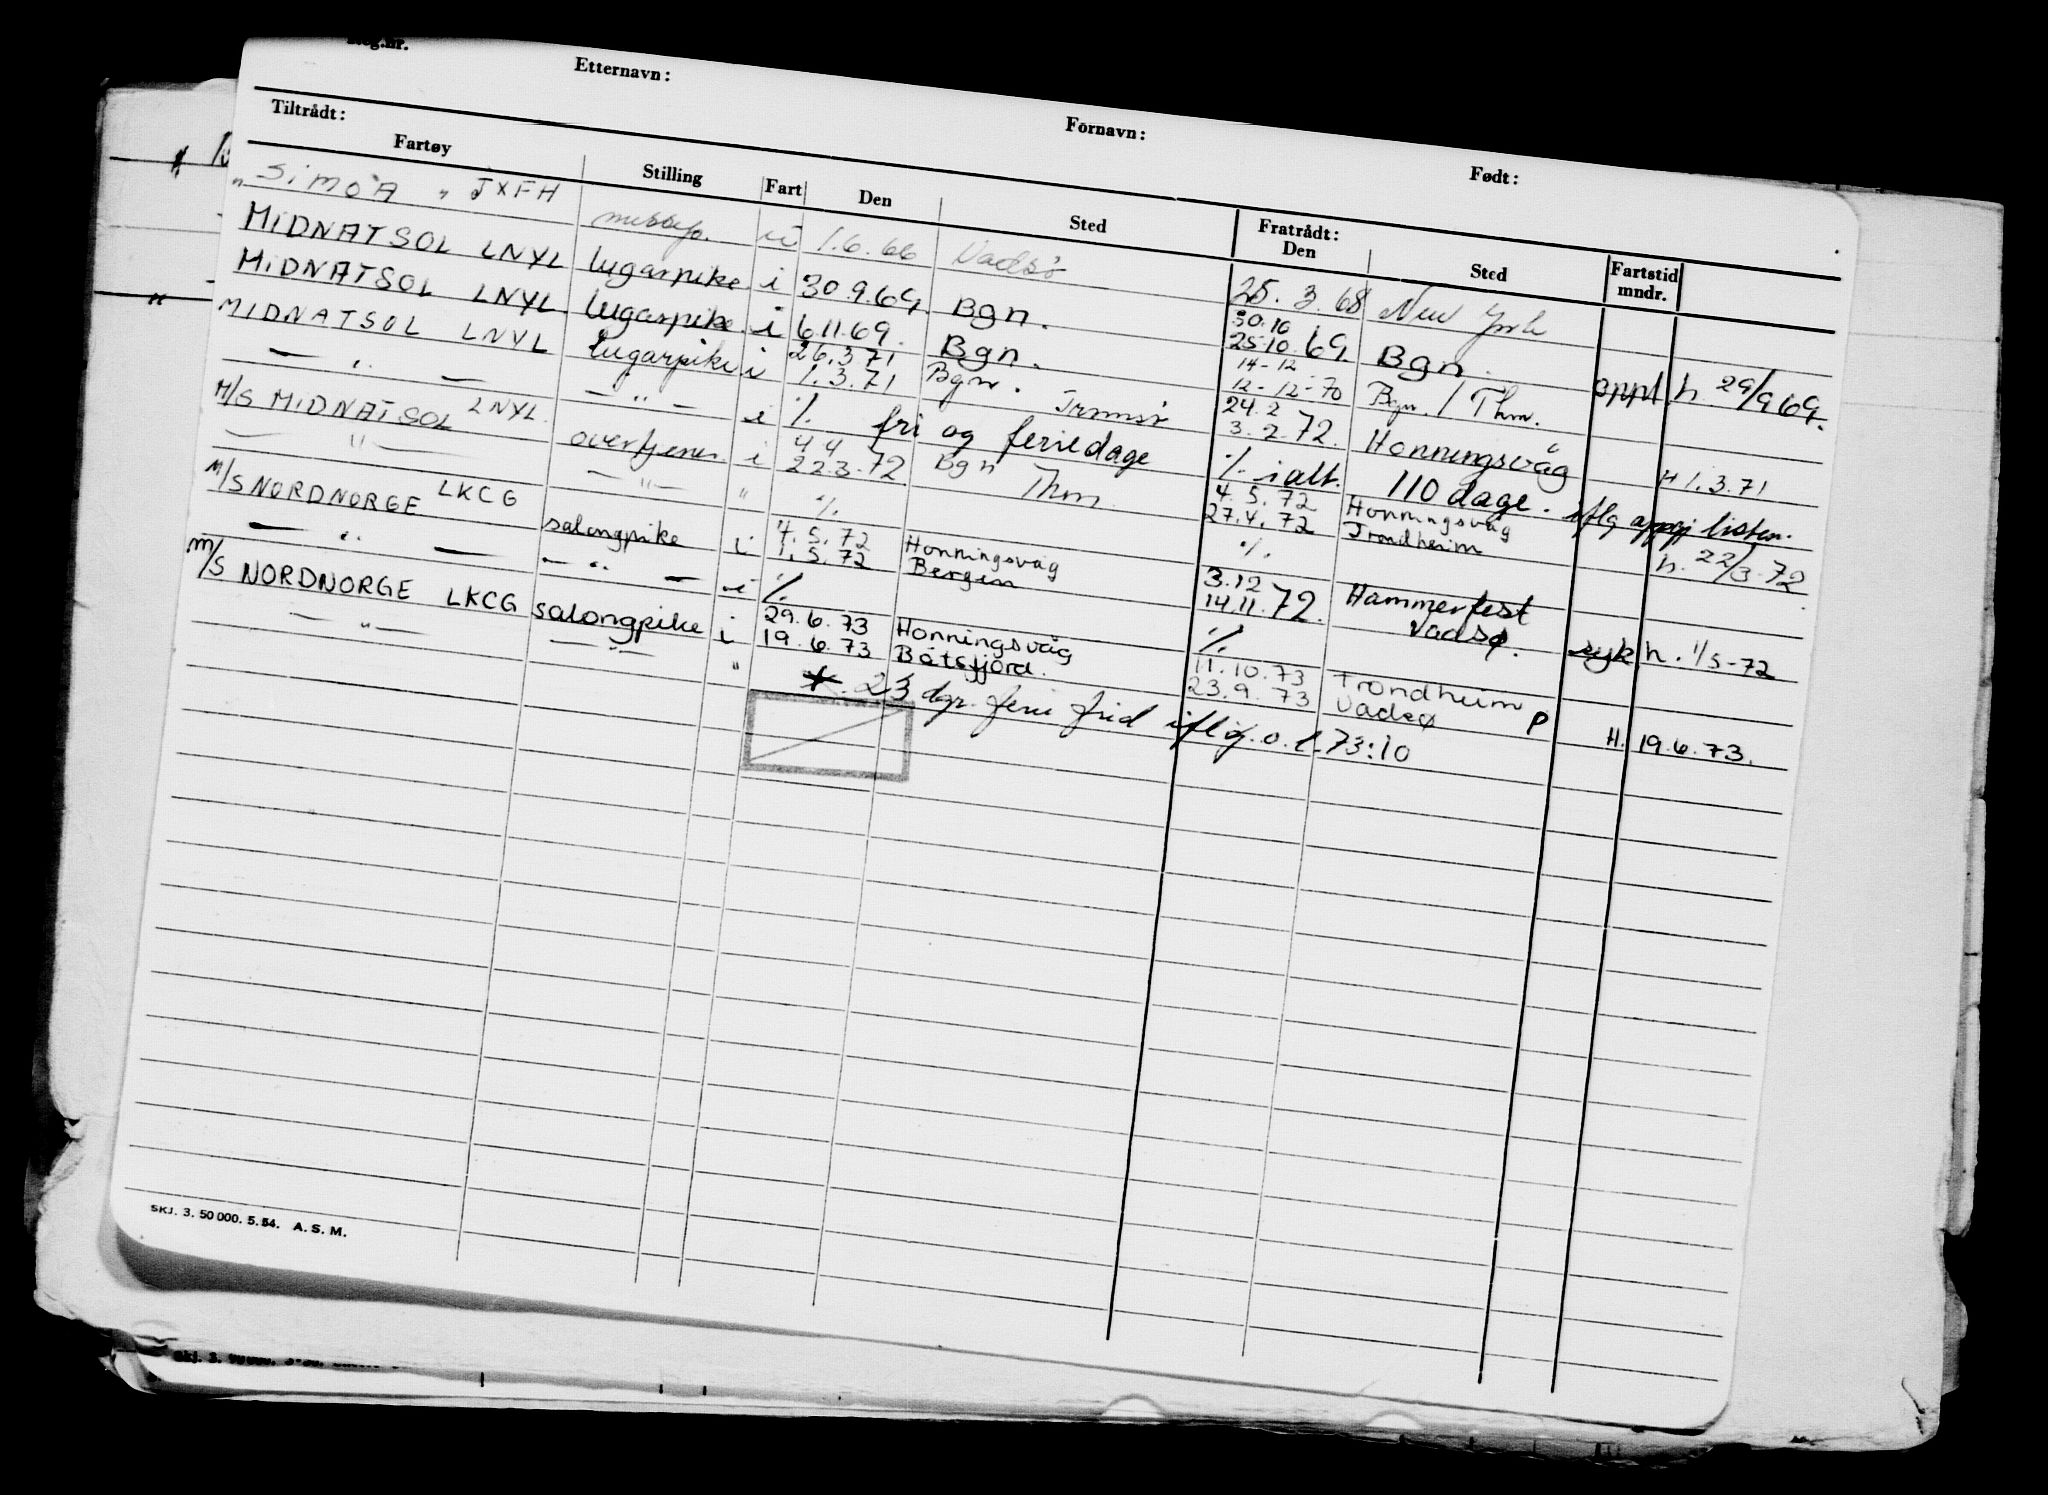 Etternavn: Fornavn: Født:
Tiltrådt: Fratrådt:
Fartøy Stilling Fart Den Sted Den Sted Fartstid mndr.
"SIMOA" JXFH u 1.6.66 Vadsø 25.3.68 New York
MIDNATSOL LNYL lugarpike i 30.9.69. Bgn. 30.10 25.10 69. Bgn. oppl. h. 29/9 69.
MIDNATSOL LNYL lugarpike i 6.11.69. Bgn. 14-12 12-12-70 Bgn. / Thm.
MIDNATSOL LNYL lugarpike i 26.3.71 1.3.71 Bgn. Tromsø 24.2 3.2.72. Honningsvåg H 1.3.71
— " — — " — i %. fri og feriedage %. ialt. 110 dage. iflg oppgj listen.
M/S MIDNATSOL LNYL. overtjener i 4.4 22.3.72 Bgn Thm 4.5.72 27.4.72 Honningsvåg Trondheim h. 22/3-72
— " — — " — " %. %.
M/S NORDNORGE LKCG salongpike i 4.5.72 1.5.72 Honningsvåg Bergen 3.12 14.11.72. Hammerfest Vadsø. syk h. 1/5-72
— " — — " — i %. %.
M/S NORDNORGE LKCG salongpike i 29.6.73 19.6.73 Honningsvåg Båtsfjord. 11.10.73 23.9.73 Trondheim Vadsø P H. 19.6.73.
— " — — " — " 23 dgr. ferie frid iflg. o.l. 73:10
SKJ. 3. 50 000. 5. 54. A. S. M.